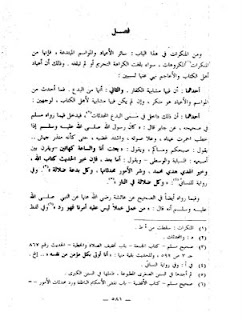 فصل
ومن المنكرات في هذا الباب : سائر الأعياد والمواسم المبتدعة ، فإنها من
المنكرات المكروهات ، سواء بلغت الكراهة التحريم أو لم تبلغه . وذلك أن أعياد
أهل الكتاب والأعاجم نهي عنها لسببين :
أحدهما : أن فيها مشابهة الكفار . والثاني : أنها من البدع . فما أحدث من
المواسم والأعياد هو منكر ، وإن لم يكن فيها مشابهة لأهل الكتاب ، لوجهين :
أحدهما : أن ذلك داخل في مسمى البدع المحدثات ، فيدخل فيما رواه مسلم
في صحيحه ، عن جابر قال : " كان رسول الله صلى الله عليه وسلم إذا
خطب احمرت عيناه ، وعلا صوته ، واشتد غضبه ، حتى كأنه منذر جيش
يقول : صبحكم ومساكم ، ويقول : " بعثت أنا والساعة كهاتين - ويقرن بين
أصبعيه : السبابة والوسطى - ويقول : أما بعد ، فإن خير الحديث كتاب الله ،
وخير الهدي هدي محمد ، وشر الأمور محدثاتها ، وكل بدعة ضلالة " وفي
رواية للنسائي : " وكل ضلالة في النار "
وفيما رواه أيضاً في الصحيح عن عائشة رضي الله عنها عن النبي صلى الله
عليه وسلم أنه قال : " من عمل عملاً ليس عليه أمرنا فهو رد " وفي لفظ في
(١) المنكرات : سقطت من
(٢) والمحدثات
(٣) صحيح مسلم - كتاب الجمعة - باب تخفيف الصلاة والخطبة - الحديث رقم ٨٦٧
(٦) صحيح مسلم - كتاب الأقضية - باب نقض الأحكام الباطلة ورد محدثات الأمور -
- ٥٨١ -